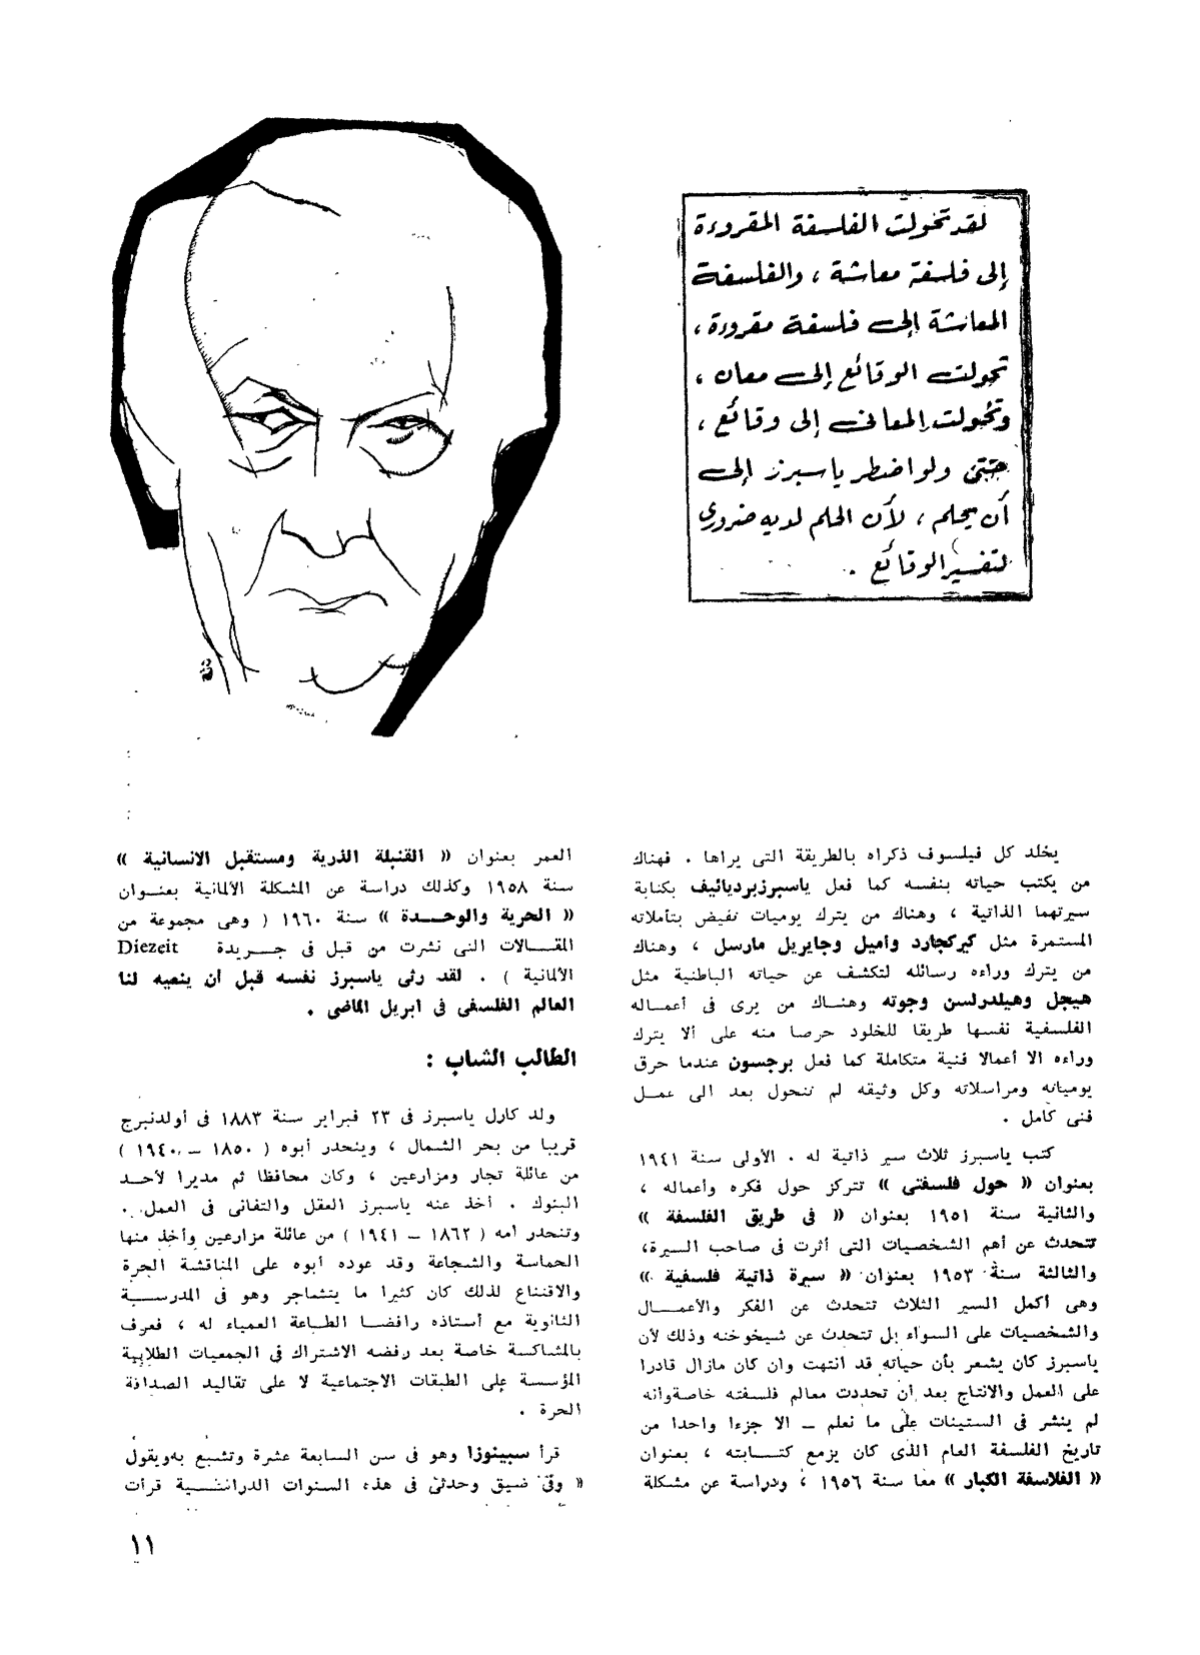 لقد تحولت الفلسفة المقروءة
إلى فلسفة معاشة ، والفلسفة
المعاشة إلى فلسفة مقروءة ،
تحولت الوقائع إلى معان ،
وتحولت المعانى إلى وقائع ،
حتى ولو اضطر ياسبرز إلى
أن يحلم ، لأن الحلم لديه ضرورى
لتفسير الوقائع .
يخلد كل فيلسوف ذكراه بالطريقة التى يراها . فهناك
من يكتب حياته بنفسه كما فعل ياسبرزبرديائيف بكتابة
سيرتهما الذاتية ، وهناك من يترك يوميات تفيض بتأملاته
المستمرة مثل كيركجارد وأميل وجابريل مارسل ، وهناك
من يترك وراءه رسائله لتكشف عن حياته الباطنية مثل
هيجل وهيلدرلسن وجوته وهناك من يرى فى أعماله
الفلسفية نفسها طريقا للخلود حرصا منه على ألا يترك
وراءه الا أعمالا فنية متكاملة كما فعل برجسون عندما حرق
يومياته ومراسلاته وكل وثيقه لم تتحول بعد الى عمل
فنى كامل .
كتب ياسبرز ثلاث سير ذاتية له . الأولى سنة ١٩٤١
بعنوان « حول فلسفتى » تتركز حول فكره وأعماله ،
والثانية سنة ١٩٥١ بعنوان « فى طريق الفلسفة »
تتحدث عن أهم الشخصيات التى أثرت فى صاحب السيرة،
والثالثة سنة ١٩٥٣ بعنوان « سيرة ذاتية فلسفية »
وهى أكمل السير الثلاث تتحدث عن الفكر والأعمال
والشخصيات على السواء بل تتحدث عن شيخوخته وذلك لأن
ياسبرز كان يشعر بأن حياته قد انتهت وان كان مازال قادرا
على العمل والانتاج بعد أن تحددت معالم فلسفته خاصةوأنه
لم ينشر فى الستينات على ما نعلم – الا جزءا واحدا من
تاريخ الفلسفة العام الذى كان يزمع كتابته ، بعنوان
« الفلاسفة الكبار » معا سنة ١٩٥٦ ، ودراسة عن مشكلة
العمر بعنوان « القنبلة الذرية ومستقبل الانسانية »
سنة ١٩٥٨ وكذلك دراسة عن المشكلة الألمانية بعنوان
« الحرية والوحدة » سنة ١٩٦٠ ( وهى مجموعة من
المقالات التى نشرت من قبل فى جريدة Diezeit
الألمانية ) . لقد رثى ياسبرز نفسه قبل أن ينعيه لنا
العالم الفلسفى فى ابريل الماضى .
الطالب الشاب :
ولد كارل ياسبرز فى ٢٣ فبراير سنة ١٨٨٣ فى أولدنبرج
قريبا من بحر الشمال ، وينحدر أبوه ( ١٨٥٠ – ١٩٤٠ )
من عائلة تجار ومزارعين ، وكان محافظا ثم مديرا لأحد
البنوك . أخذ عنه ياسبرز العقل والتفانى فى العمل .
وتنحدر أمه ( ١٨٦٢ – ١٩٤١ ) من عائلة مزارعين وأخذ منها
الحماسة والشجاعة وقد عوده أبوه على المناقشة الحرة
والاقتناع لذلك كان كثيرا ما يتشاجر وهو فى المدرسة
الثانوية مع أستاذه رافضا الطاعة العمياء له ، فعرف
بالمشاكسة خاصة بعد رفضه الاشتراك فى الجمعيات الطلابية
المؤسسة على الطبقات الاجتماعية لا على تقاليد الصداقة
الحرة .
قرأ سبينوزا وهو فى سن السابعة عشرة وتشبع بهويقول
« وفى ضيق وحدتى فى هذه السنوات الدراسية قرأت
١١